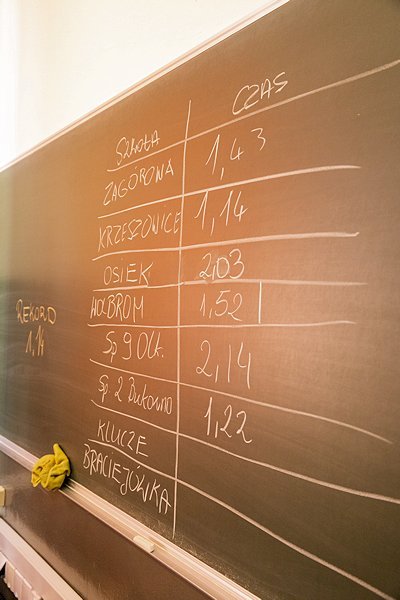 SZKOŁA CZAS
ZAGÓROWA 1,43
KRZESZOWICE 1,14
OSIEK 2,03
WOLBROM 1,52
Sp 9 Olk. 2,14
Sp 2 Bukowno 1,22
KLUCZE
BRACIEJÓWKA
REKORD
1,14